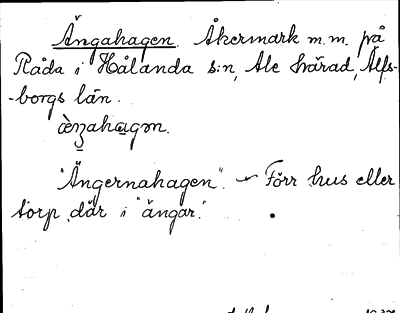 Ängahagen. Åkermark m.m. på
Råda i Hålanda s:n, Ale härad, Älfs-
-borgs län.
"Ängernahagen". – Förr hus eller
torp där i "ängar".